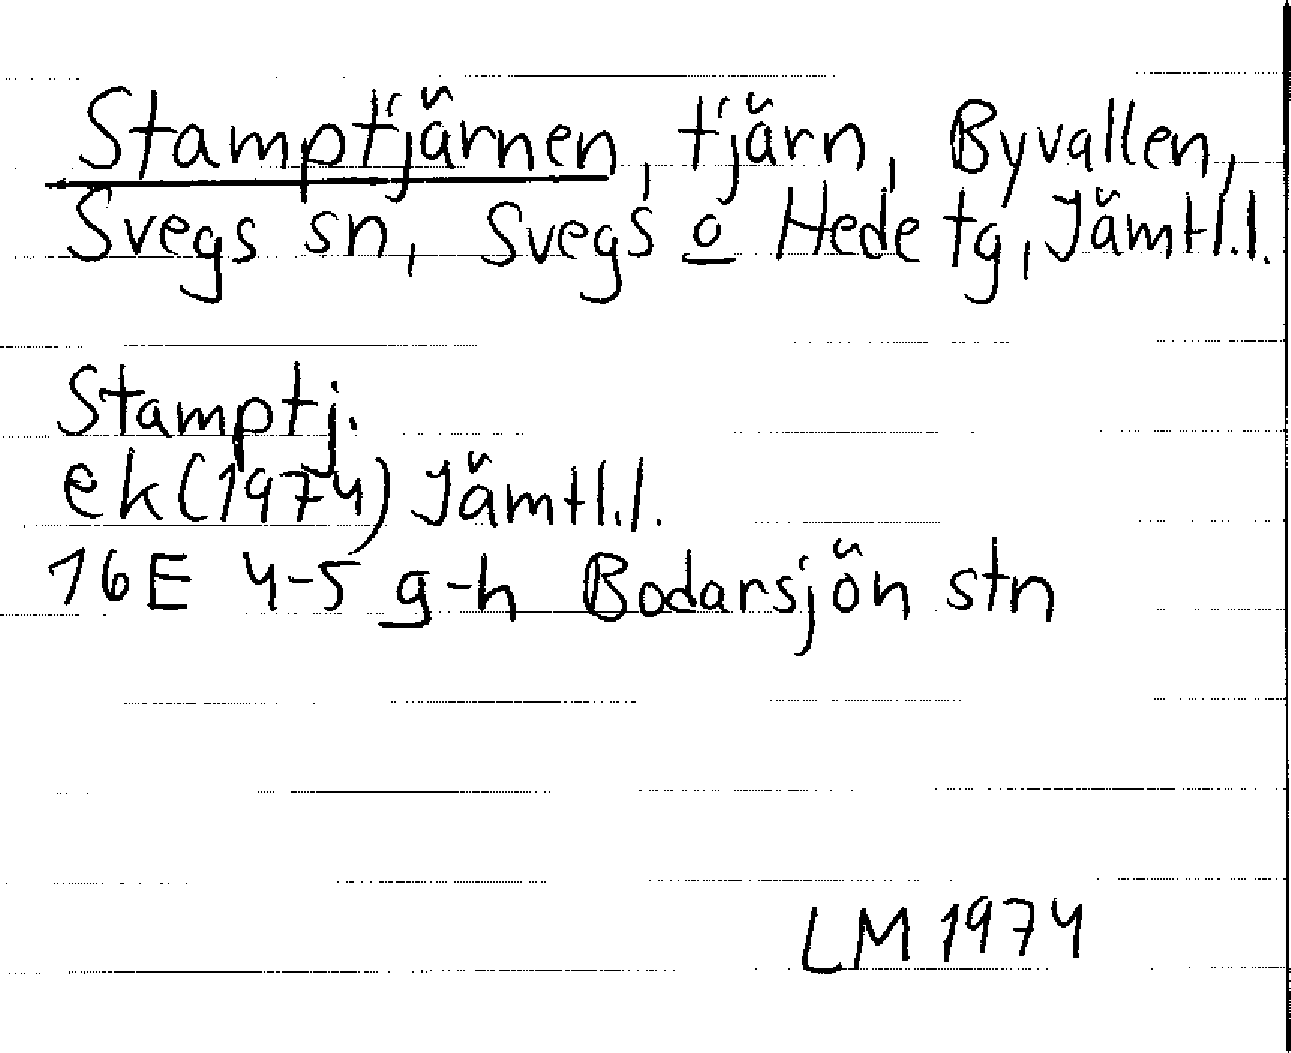 Stamptjärnen, tjärn, Byvallen,
Svegs sn, Svegs o Hede tg, Jämtl.l.
Stamptj.
ek(1974) Jämtl.l.
16E 4-5 g-h Bodarsjön stn
LM 1974